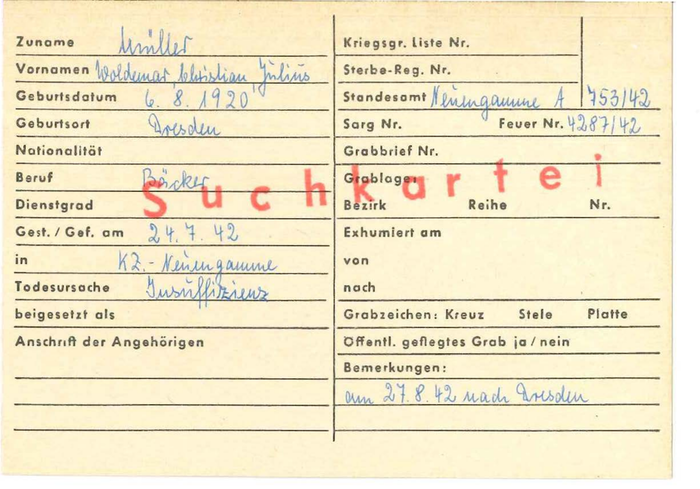 Zuname Müller
Vornamen Woldemar Christian Julius
Geburtsdatum 6. 8. 1920
Geburtsort Dresden
Nationalität
Beruf Bäcker
Dienstgrad
Gest. / Gef. am 24. 7. 42
in KZ.-Neuengamme
Todesursache Insuffizienz
beigesetzt als
Anschrift der Angehörigen
Suchkartei
Kriegsgr. Liste Nr.
Sterbe-Reg. Nr.
Standesamt Neuengamme A 753/42
Sarg Nr. Feuer Nr. 4287/42
Grabbrief Nr.
Grablage:
Bezirk Reihe Nr.
Exhumiert am
von
nach
Grabzeichen: Kreuz Stele Platte
Öffentl. gepflegtes Grab ja / nein
Bemerkungen:
am 27. 8. 42 nach Dresden